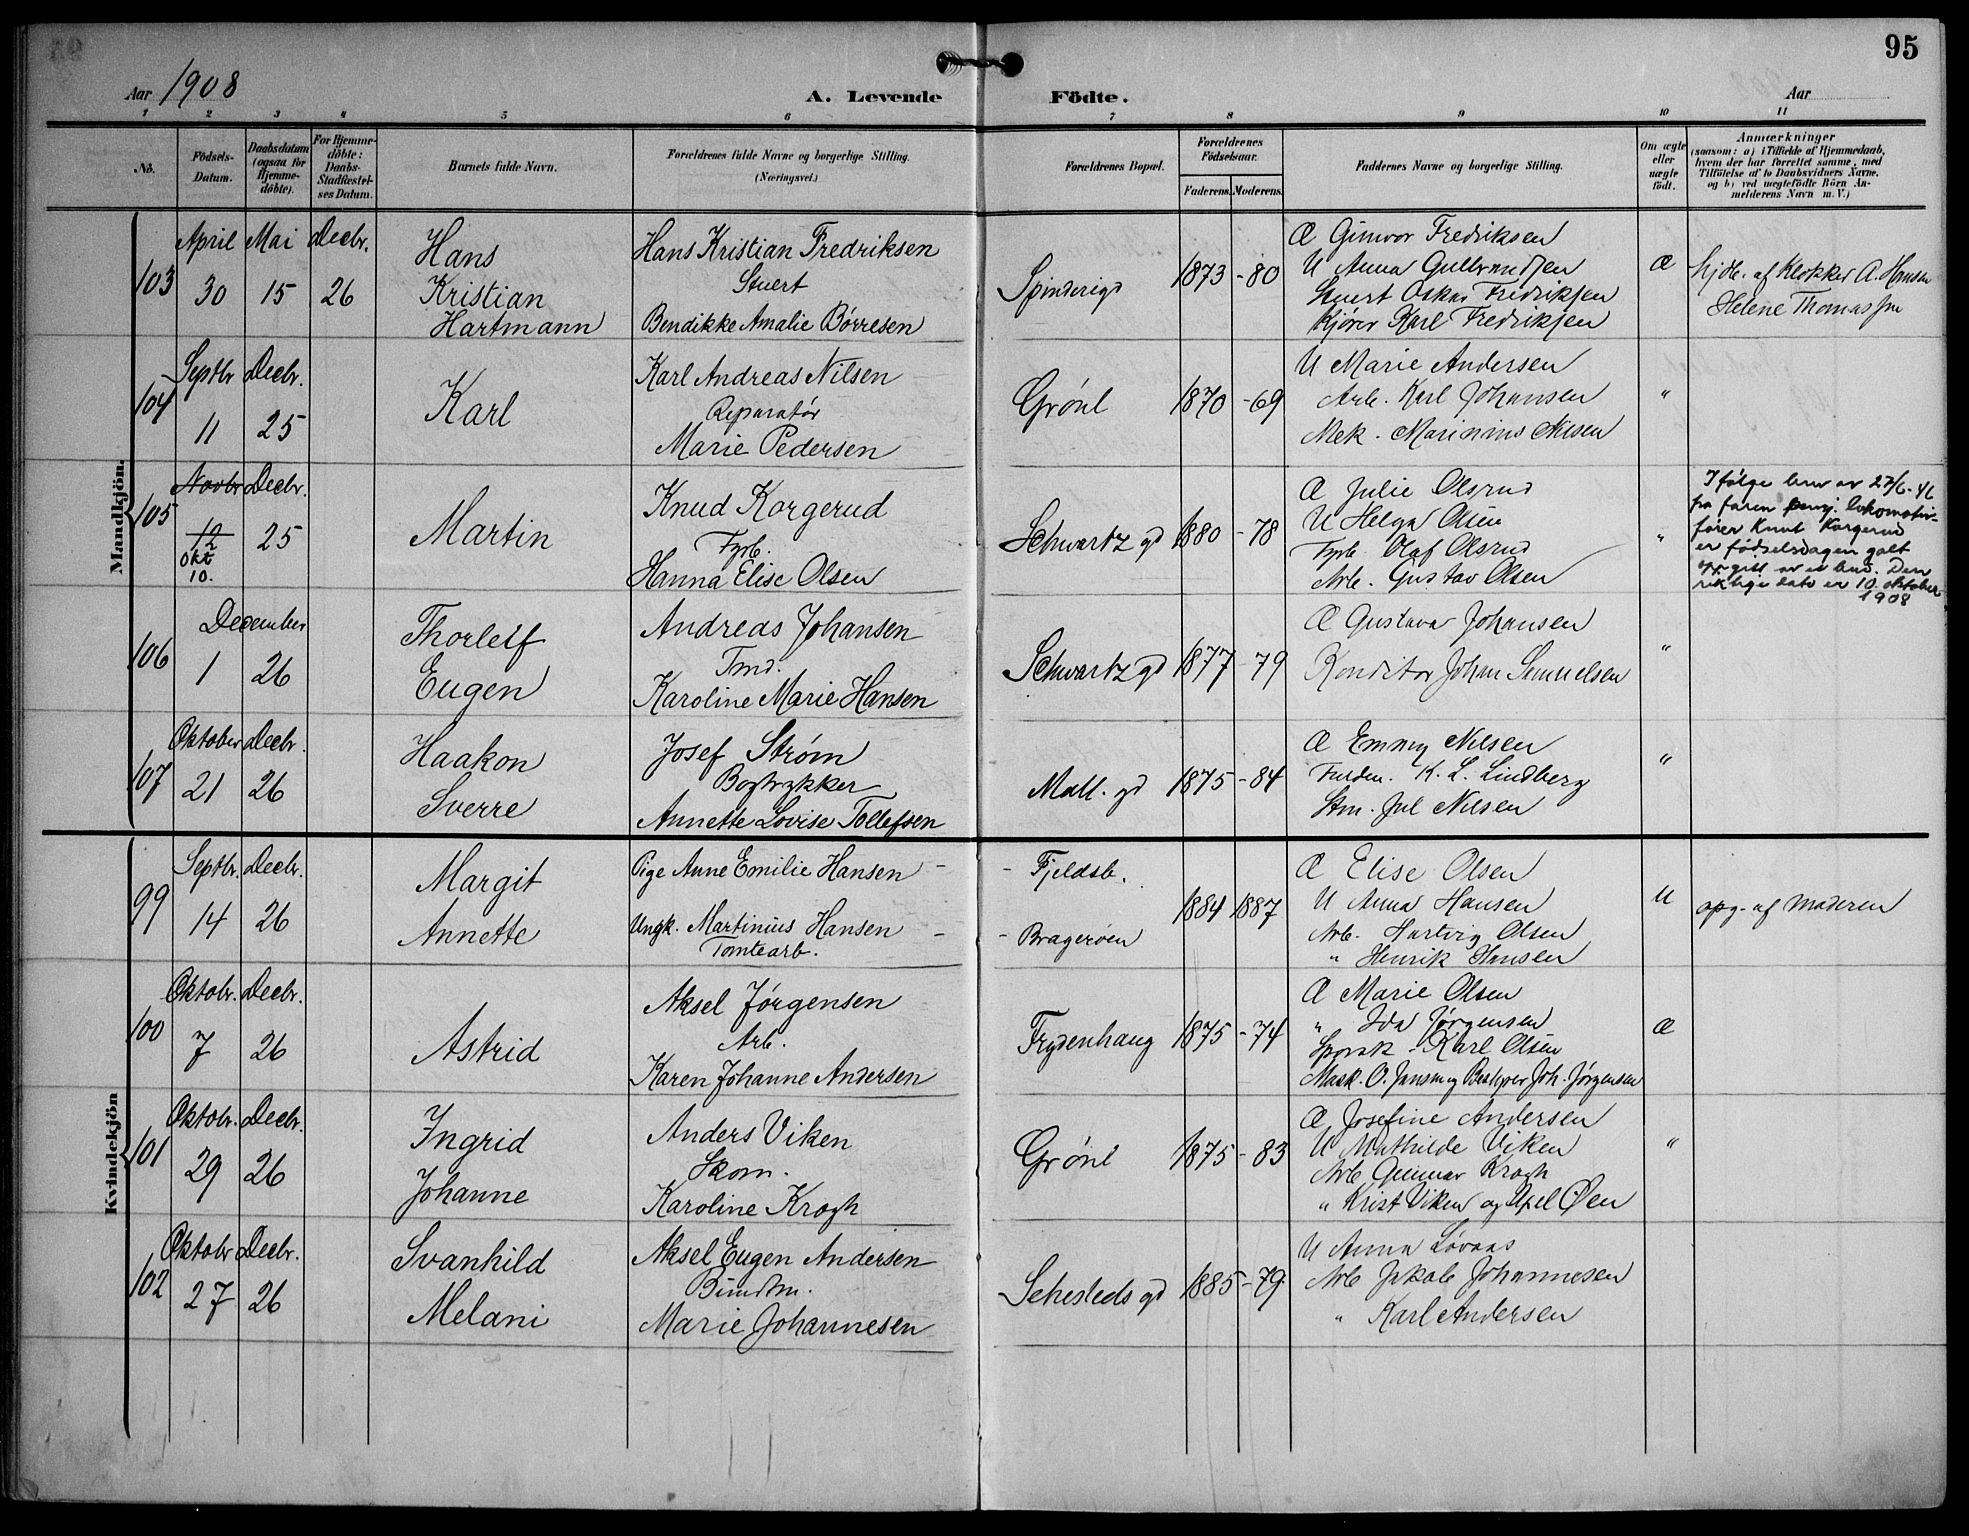 95
Aar 1908
A. Levende Födte.
Aar
1 2 3 4 5 6 7 8 9 10 11
No.
Födsels-Datum.
Daabsdatum (ogsaa for Hjemmedöbte).
For Hjemmedöbte: Daabs-Stadfæstelses Datum.
Barnets fulde Navn.
Forældrenes fulde Navne og borgerlige Stilling.
(Næringsvei.)
Forældrenes Bopæl.
Forældrenes Födselsaar.
Faderens. Moderens.
Faddernes Navne og borgerlige Stilling.
Om ægte eller uægte födt.
Anmærkninger
(saasom: a) i Tilfælde af Hjemmedaab, hvem der har forrettet samme, med Tilföielse af to Daabsvidners Navne, og b) ved uægtefödte Börn Anmelderens Navn m. V.)
Mandkjön.
103
April 30
Mai 15
Decbr. 26
Hans
Kristian
Hartmann
Hans Kristian Fredriksen
Stuert
Bendikke Amalie Børresen
Spinderigd
1873 - 80
Æ Gunvor Fredriksen
U Anna Gulbrandsen
Stuert Oskar Fredriksen
Kjører Karl Fredriksen
Æ
hjdb. af Klokker A. Hansen
Helene Thomassen
104
Septbr 11
Decbr. 25
Karl
Karl Andreas Nilsen
Reparatør
Marie Pedersen
Grønl
1870 - 69
U Marie Andersen
Arb. Karl Johansen
Mek. Marinius Nilsen
"
105
Novbr 12
Okt 10.
Decbr. 25
Martin
Knud Korgerud
Fyrb.
Hanna Elise Olsen
Schwartz gd
1880 - 78
Æ Julie Olsrud
U Helga Olsen
Fyrb. Olaf Olsrud
Arb. Gustav Olsen
"
Ifølge brev av 27/6-46
fra faren pensj. lokomotiv-
fører Knut Korgerud
er fødselsdagen galt
oppgitt av et bud. Den
riktige dato er 10. oktober
1908
106
December
1
26
Thorleif
Eugen
Andreas Johansen
Tmd.
Karoline Marie Hansen
Schwartz gd
1877 - 79
Æ Gustava Johansen
Konditor Johan Samuelsen
"
107
Oktober 21
Decbr. 26
Haakon
Sverre
Josef Strøm
Bogtrykker
Annette Lovise Tollefsen
Mall. gd
1875 - 84
Æ Emmy Nilsen
K. L. Lindberg
Stm. Jul Nilsen
"
Kvindekjön
99
Septbr. 14
Decbr. 26
Margit
Annette
Pige Anne Emilie Hansen -
Ungk. Martinius Hansen -
Tomtearb.
- Fjeldsb.
- Bragerøen
1884 1887
Æ Elise Olsen
U Anna Hansen
Arb. Hartvig Olsen
" Henrik Hansen
U
opg. af Moderen
100
Oktobr. 7
Decbr. 26
Astrid
Aksel Jørgensen
Arb.
Karen Johanne Andersen
Frydenhaug
1875 - 74
Æ Marie Olsen
" Ida Jørgensen
Sporsk. Karl Olsen
Mask. O. Jansen og Joh. Jørgensen
Æ
101
Oktobr. 29
Decbr. 26
Ingrid
Johanne
Anders Viken
Skom.
Karoline Krogh
Grønl
1875 - 83
Æ Josefine Andersen
U Mathilde Viken
Arb Gunnar Krogh
" Krist Viken og Axel Øen
"
102
Oktobr 27
Decbr. 26
Svanhild
Melani
Aksel Eugen Andersen
Bundtm.
Marie Johannesen
Sehesteds gd
1885 - 79
U Anna Løvaas
Arb Jakob Johannesen
" Karl Andersen